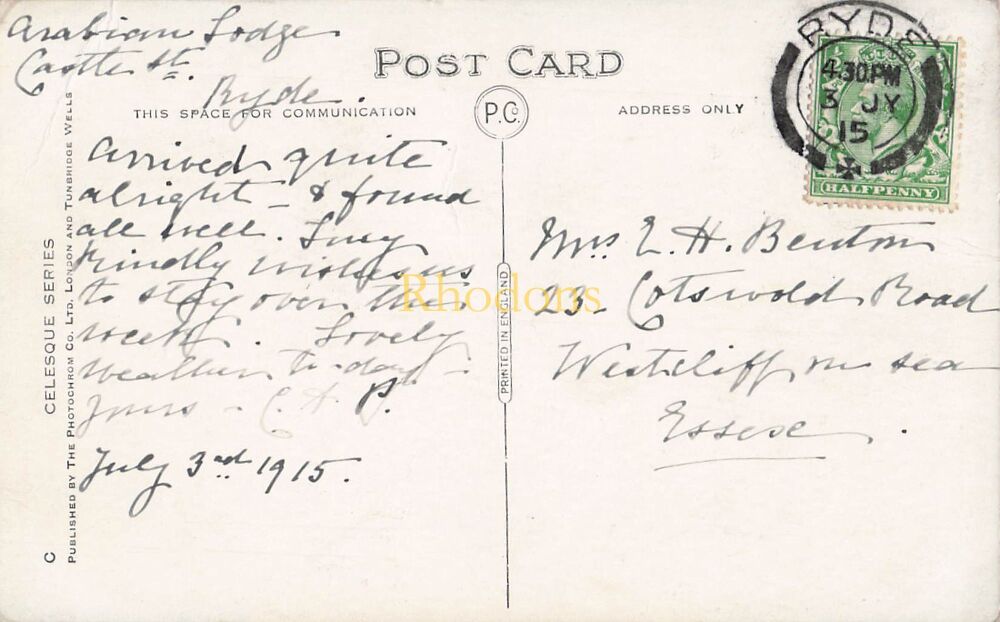 Arabian Lodge
Castle St.
Ryde.
POST CARD
THIS SPACE FOR COMMUNICATION
P.C.
ADDRESS ONLY
Arrived quite
alright - & found
all well. Lucy
kindly wishes us
to stay over the
week. Lovely
weather to-day -
Yours - C. H. P.
July 3rd 1915.
Mrs. E. H. Benton
23 Cotswold Road
Westcliff on sea
Essex.
RYDE
4.30PM
3 JY
15
HALFPENNY
PRINTED IN ENGLAND
CELESQUE SERIES
C
PUBLISHED BY THE PHOTOCHROM CO. LTD. LONDON AND TUNBRIDGE WELLS
Rhodons